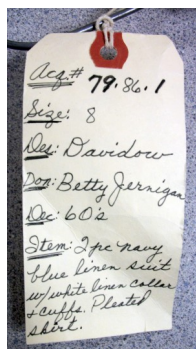 Acq.# 79.86.1
Size: 8
Des: Davidow
Don: Betty Jernigan
Dec: 60's
Item: 2 pc navy
blue linen suit
w/white linen collar
+ cuffs. Pleated
skirt.